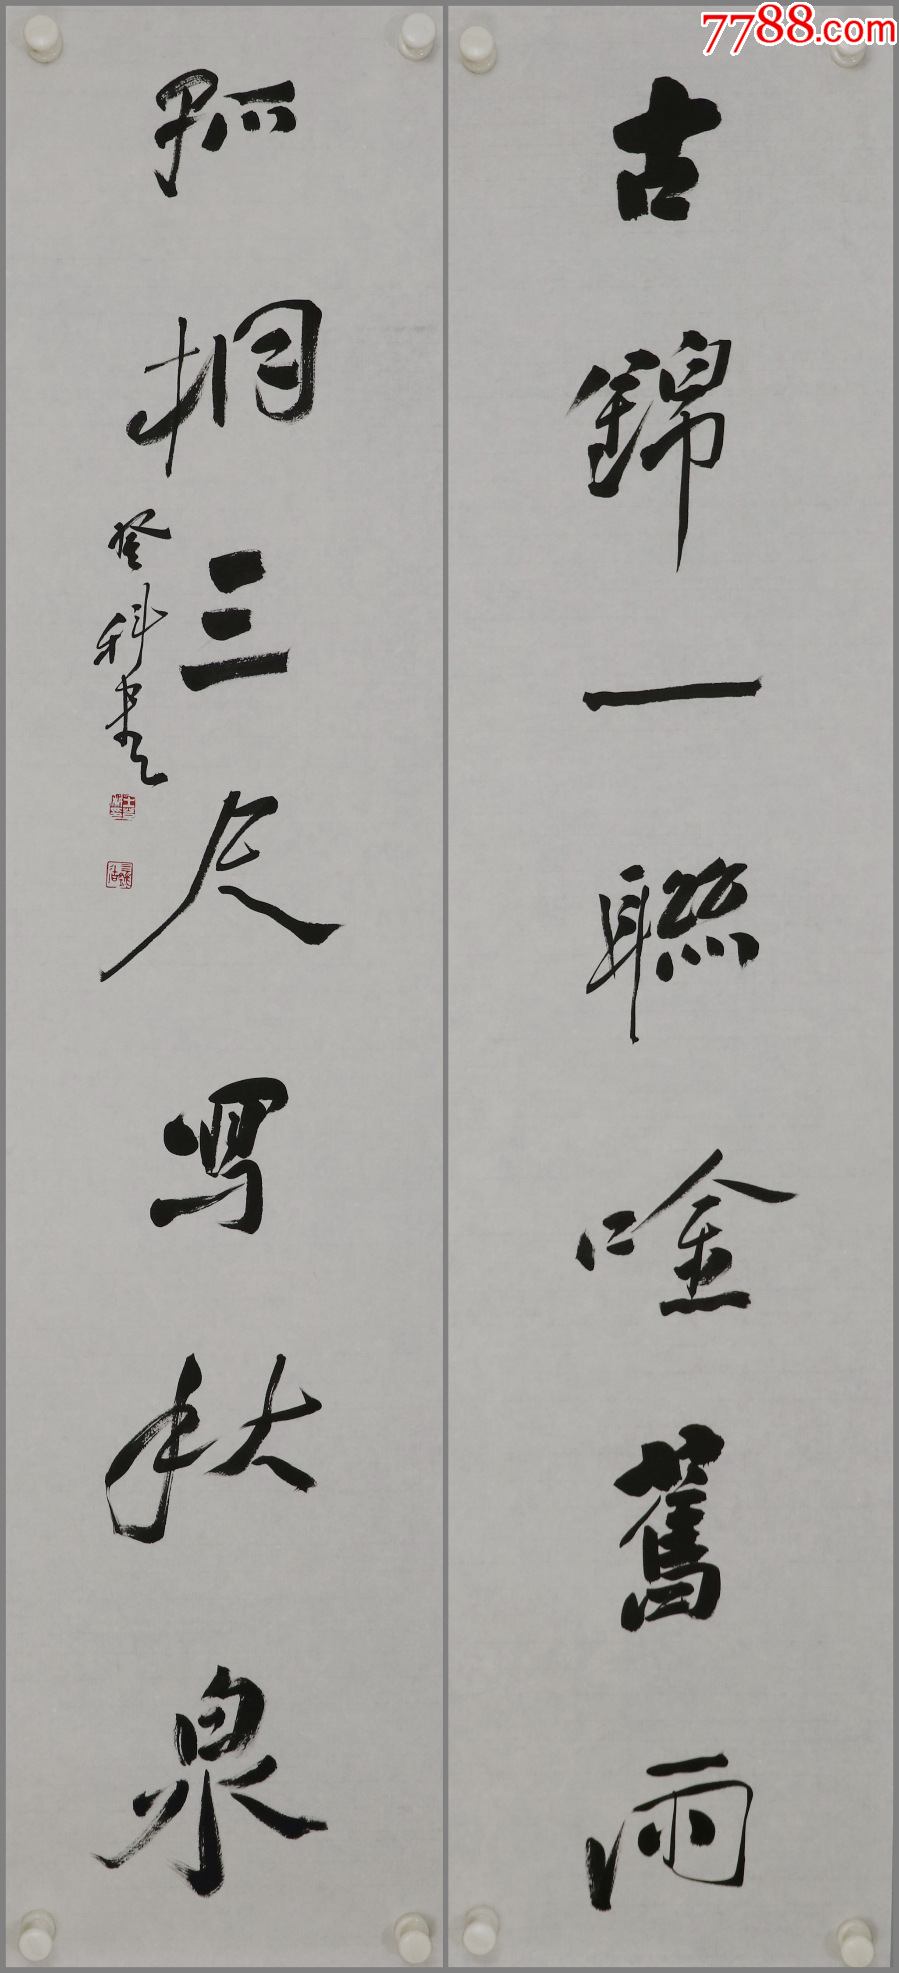 古錦一聯唫舊雨
孤桐三尺写秋泉
登科书
7788.com